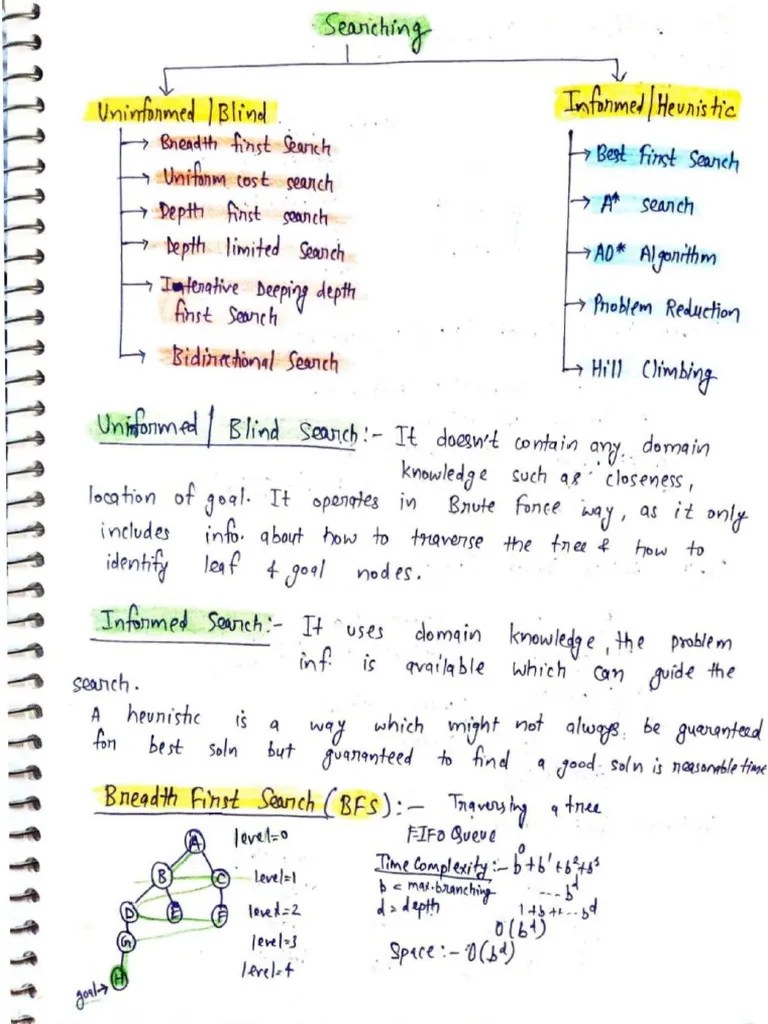 Searching
Uninformed / Blind
→ Breadth first Search
→ Uniform cost search
→ Depth first search
→ Depth limited Search
→ Interative Deeping depth
first Search
→ Bidirectional Search
Informed / Heuristic
→ Best First Search
→ A* search
→ AO* Algorithm
→ Problem Reduction
→ Hill Climbing
Uninformed / Blind Search :- It doesn't contain any domain
knowledge such as closeness,
location of goal. It operates in Brute Force way, as it only
includes info. about how to traverse the tree & how to
identify leaf & goal nodes.
Informed Search :- It uses domain knowledge, the problem
inf. is available which can guide the
search.
A heuristic is a way which might not always be guaranteed
for best soln but guaranteed to find a good soln is reasonable time
Breadth First Search (BFS) :- Traversing a tree
FIFO Queue
A level=0
B C level=1
D E F level=2
G level=3
H level=4
goal→
Time Complexity :- b⁰+b¹+b²+b³
b = max. branching ---- bᵈ
d = depth 1+b++--bᵈ
O(bᵈ)
Space :- O(bᵈ)